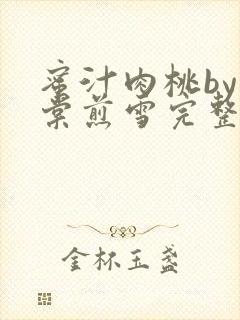 蜜汁肉桃by
棠煎雪完整
金杯玉盏